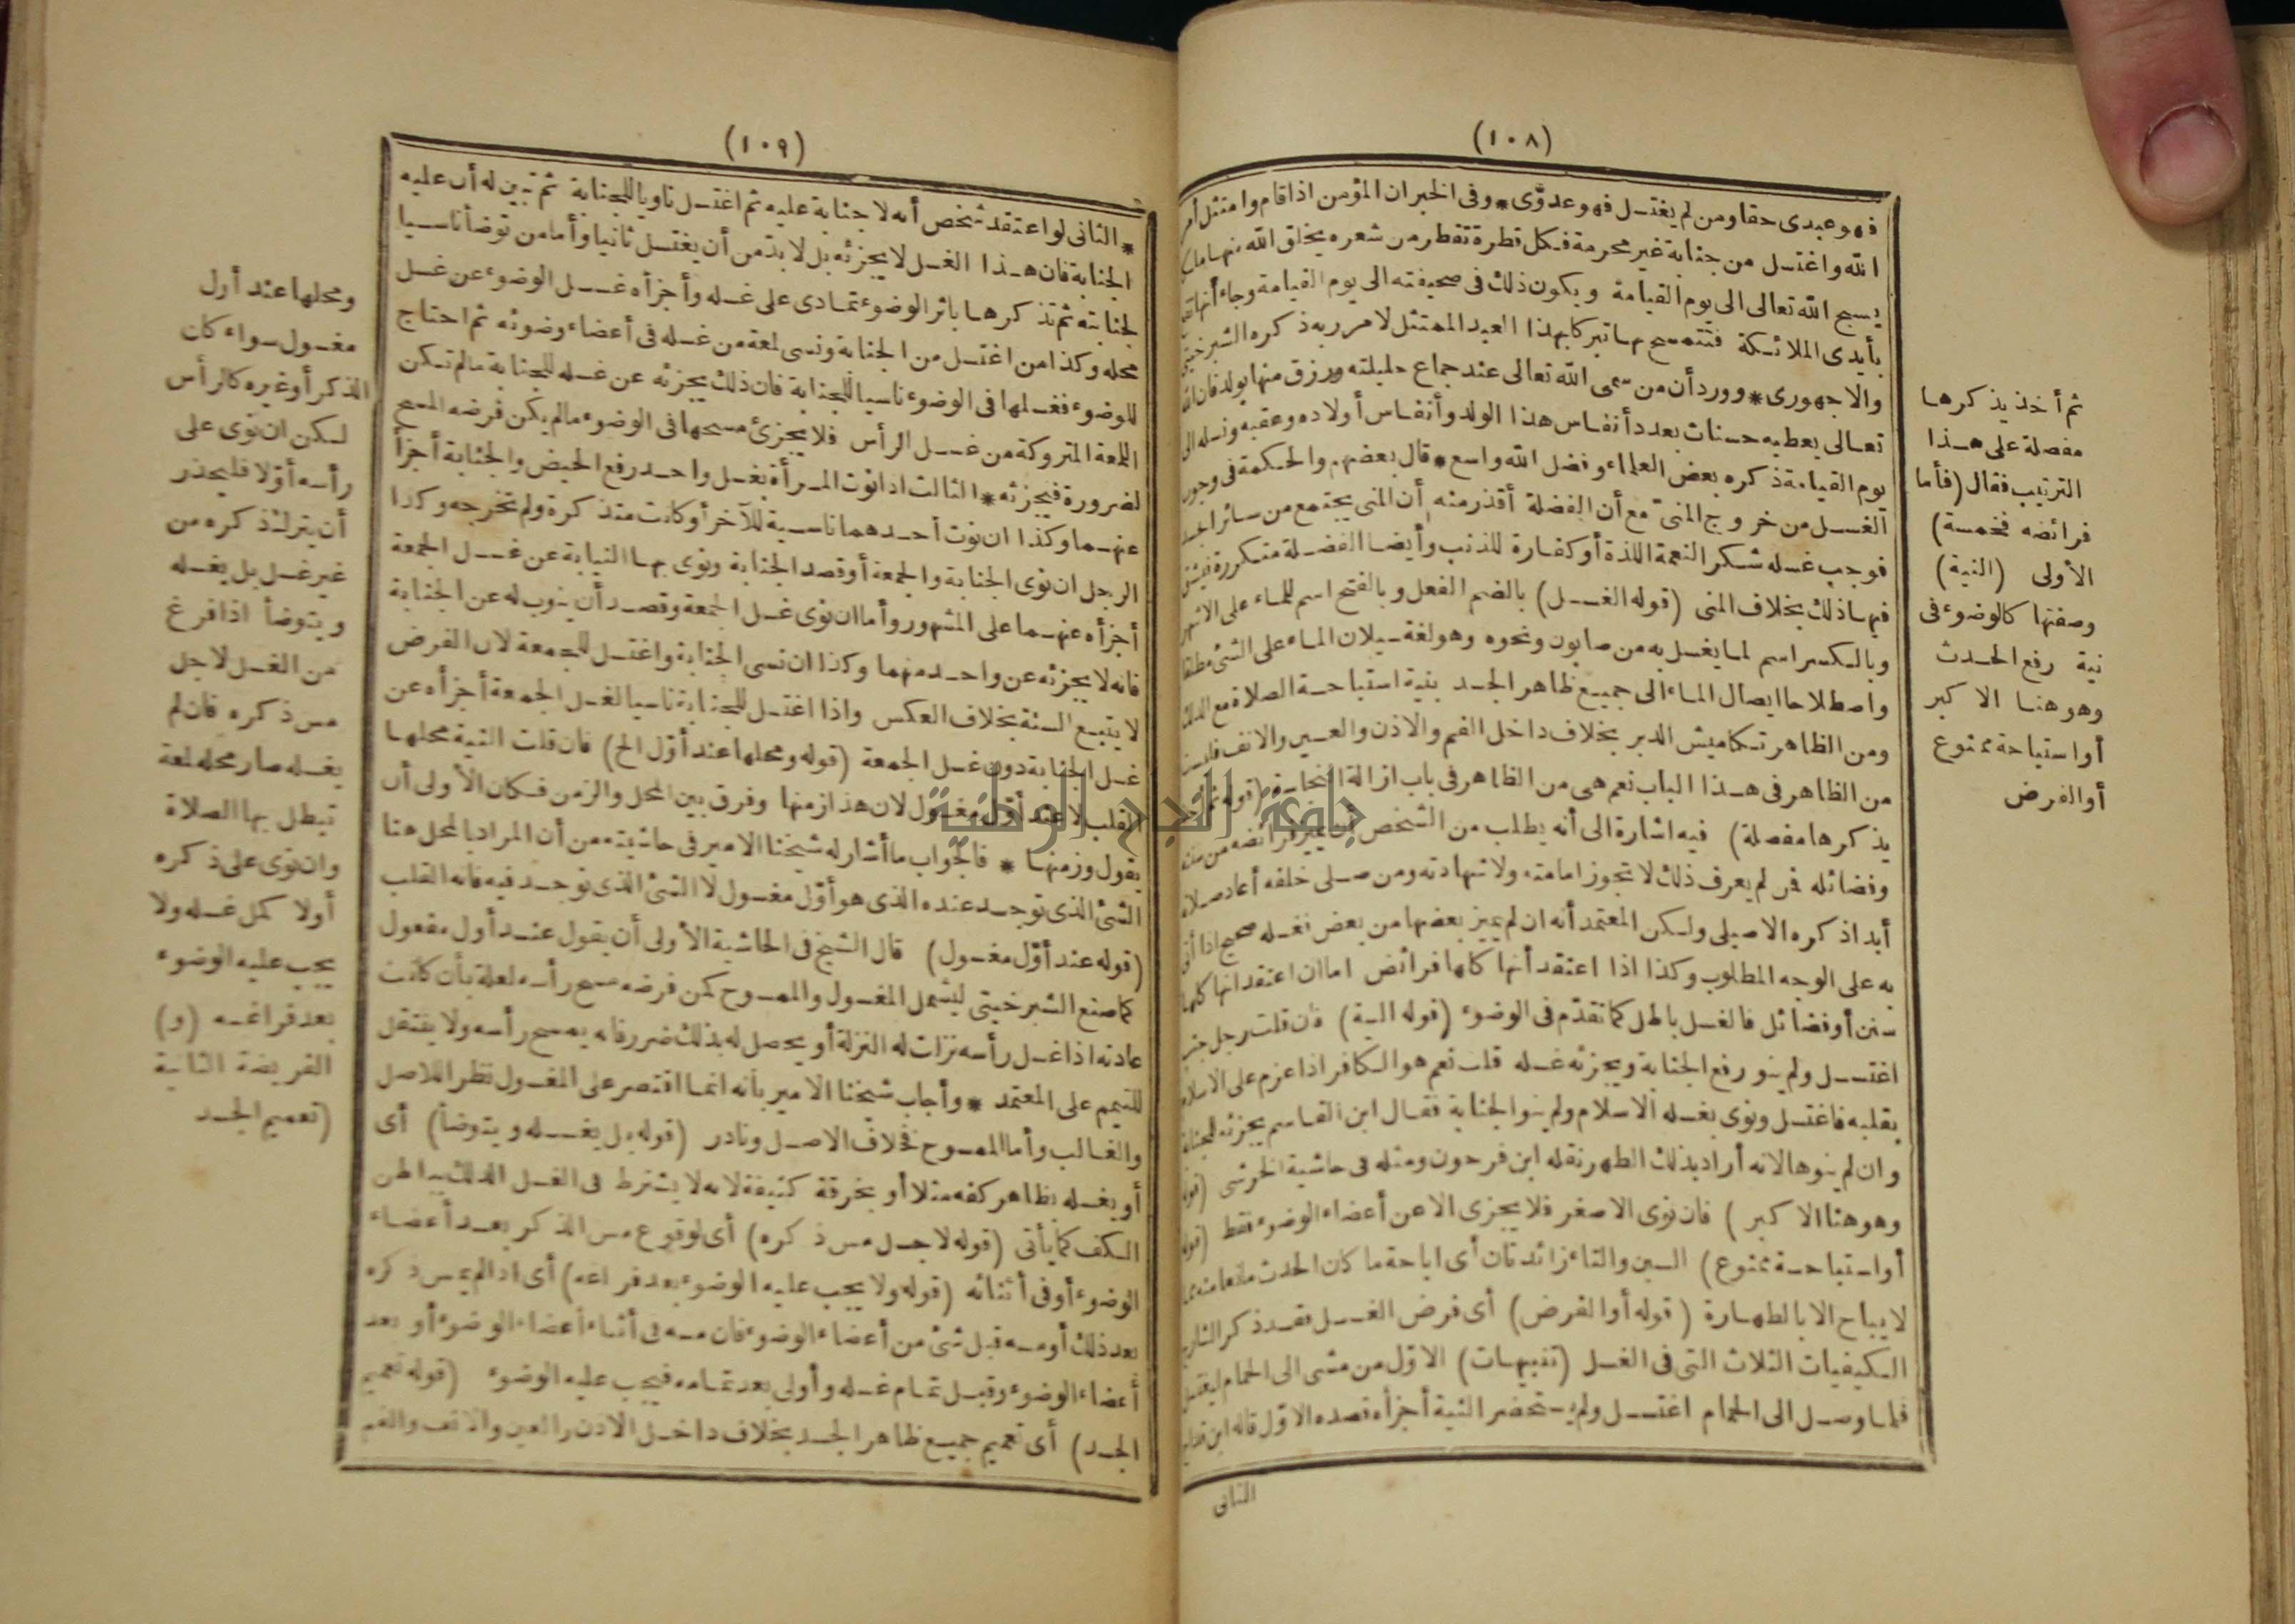 (١٠٨)
فهو عبدى حقا ومن لم يغتسل فهو عدوّى * وفى الخبر ان المؤمن اذا قام وامتثل أمر
الله واغتسل من جنابة غير محرمة فكل قطرة تقطر من شعره يخلق الله منها ملكا
يسبح الله تعالى الى يوم القيامة ويكون ذلك فى صحيفته الى يوم القيامة وجاء أنها
بأيدى الملائكة فتتمسح بها تبركا بهذا العبد الممتثل لامر ربه ذكره الشبرخيتى
والاجهورى * وورد أن من سمى الله تعالى عند جماع حليلته ورزق منها بولد فان الله
تعالى يعطيه حسنات بعدد أنفاس هذا الولد وأنفاس أولاده وعقبه ونسله الى
يوم القيامة ذكره بعض العلماء وفضل الله واسع * قال بعضهم والحكمة فى وجوب
الغسل من خروج المنىّ مع أن الفضلة أقذر منه أن المنى يجتمع من سائر الجسد
فوجب غسله شكر النعمة اللذة أو كفارة للذنب وأيضا الفضلة متكررة فيشق
فيها ذلك بخلاف المنى (قوله الغسل) بالضم الفعل وبالفتح اسم للماء على الاشهر
وبالكسر اسم لما يغسل به من صابون ونحوه وهو لغة سيلان الماء على الشئ مطلقا
واصطلاحا ايصال الماء الى جميع ظاهر الجسد بنية استباحة الصلاة مع الدلك
ومن الظاهر تكاميش الدبر بخلاف داخل الفم والاذن والعين والانف فليست
من الظاهر فى هذا الباب نعم هى من الظاهر فى باب ازالة النجاسة (قوله ثم أخذ
يذكرها مفصلة) فيه اشارة الى أنه يطلب من الشخص تمييز فرائضه من سننه
وفضائله فمن لم يعرف ذلك لا تجوز امامته ولا شهادته ومن صلى خلفه أعاد صلاته
أبدا ذكره الاصيلى ولكن المعتمد أنه ان لم يميز بعضها من بعض فغسله صحيح اذا أتى
به على الوجه المطلوب وكذا اذا اعتقد أنها كلها فرائض اما ان اعتقد انها كلها
سنن أو فضائل فالغسل باطل كما تقدّم فى الوضوء (قوله النية) فان قلت رجل جنب
اغتسل ولم ينو رفع الجنابة ويجزئه غسله قلت نعم هو الكافر اذا عزم على الاسلام
بقلبه فاغتسل ونوى بغسله الاسلام ولم ينو الجنابة فقال ابن القاسم يجزئه للجنابة
وان لم ينوها لانه أراد بذلك الطهر نقله ابن فرحون ومثله فى حاشية الخرشى (قوله
وهو هنا الاكبر) فان نوى الاصغر فلا يجزى الا عن أعضاء الوضوء فقط (قوله
أو استباحة ممنوع) السين والتاء زائدتان أى اباحة ما كان الحدث مانعا منه مما
لا يباح الا بالطهارة (قوله أو الفرض) أى فرض الغسل فقد ذكر الشارح
الكيفيات الثلاث التى فى الغسل (تنبيهات) الاوّل من مشى الى الحمام ليغتسل
فلما وصل الى الحمام اغتسل ولم يستحضر النية أجزأه قصده الاوّل قاله ابن
الثانى
ثم أخذ يذكرها
مفصلة على هذا
الترتيب فقال (فأما
فرائضه فخمسة)
الأولى (النية)
وصفتها كالوضوء فى
نية رفع الحدث
وهو هنا الاكبر
أو استباحة ممنوع
أو الفرض
(١٠٩)
* الثانى لو اعتقد شخص أنه لا جنابة عليه ثم اغتسل ناويا للجنابة ثم تبين له أن عليه
الجنابة فان هذا الغسل لا يجزئه بل لا بدّ من أن يغتسل ثانيا وأما من توضأ ناسيا
لجنابته ثم تذكرها باثر الوضوء تمادى على غسله وأجزأه غسل الوضوء عن غسل
محله وكذا من اغتسل من الجنابة ونسى لمعة من غسله فى أعضاء وضوئه ثم احتاج
للوضوء فغسلها فى الوضوء ناسيا للجنابة فان ذلك يجزئه عن غسله للجنابة مالم تكن
اللمعة المتروكة من غسل الرأس فلا يجزئ مسحها فى الوضوء مالم يكن فرضه المسح
لضرورة فيجزئه * الثالث اذا نوت المرأة بغسل واحد رفع الحيض والجنابة أجزأ
عنهما وكذا ان نوت أحدهما ناسية للآخر أو كانت متذكرة ولم تخرجه وكذا
الرجل ان نوى الجنابة والجمعة أو قصد الجنابة ونوى بها النيابة عن غسل الجمعة
أجزأه عنهما على المشهور وأما ان نوى غسل الجمعة وقصد أن ينوب له عن الجنابة
فانه لا يجزئه عن واحد منهما وكذا ان نسى الجنابة واغتسل للجمعة لان الفرض
لا يتبع السنة بخلاف العكس واذا اغتسل للجنابة ناسيا لغسل الجمعة أجزأه عن
غسل الجنابة دون غسل الجمعة (قوله ومحلها عند أوّل الخ) فان قلت النية محلها
القلب لا عند أوّل مغسول لان هذا زمنها وفرق بين المحل والزمن فكان الأولى أن
يقول وزمنها * فالجواب ما أشار له شيخنا الامير فى حاشيته من أن المراد بالمحل هنا
الشئ الذى توجد عنده الذى هو أوّل مغسول لا الشئ الذى توجد فيه فانه القلب
(قوله عند أوّل مغسول) قال الشيخ فى الحاشية الأولى أن يقول عند أول مفعول
كما صنع الشبرخيتى ليشمل المغسول والممسوح كمن فرضه مسح رأسه لعلة بأن كانت
عادته اذا غسل رأسه نزلت له النزلة أو يحصل له بذلك ضرر فانه يمسح رأسه ولا ينتقل
للتيمم على المعتمد * وأجاب شيخنا الامير بأنه انما اقتصر على المغسول نظرا للاصل
والغالب وأما الممسوح فخلاف الاصل ونادر (قوله بل يغسله ويتوضأ) أى
أو يغسله بظاهر كفه مثلا أو بخرقة كثيفة لانه لا يشترط فى الغسل الدلك بباطن
الكف كما يأتى (قوله لاجل مس ذكره) أى لوقوع مس الذكر بعد أعضاء
الوضوء أو فى أثنائه (قوله ولا يجب عليه الوضوء بعد فراغه) أى اذا لم يمس ذكره
بعد ذلك أو مسه قبل شئ من أعضاء الوضوء فان مسه فى أثناء أعضاء الوضوء أو بعد
أعضاء الوضوء وقبل تمام غسله وأولى بعد تمامه فيجب عليه الوضوء (قوله تعميم
الجسد) أى تعميم جميع ظاهر الجسد بخلاف داخل الاذن والعين والانف والفم
ومحلها عند أول
مغسول سواء كان
الذكر أو غيره كالرأس
لكن ان نوى على
رأسه أوّلا فليحذر
أن يترك ذكره من
غير غسل بل يغسله
ويتوضأ اذا فرغ
من الغسل لاجل
مس ذكره فان لم
يغسله صار محله لمعة
تبطل بها الصلاة
وان نوى على ذكره
أولا كمل غسله ولا
يجب عليه الوضوء
بعد فراغه (و)
الفريضة الثانية
(تعميم الجسد
جامعة النجاح الوطنية